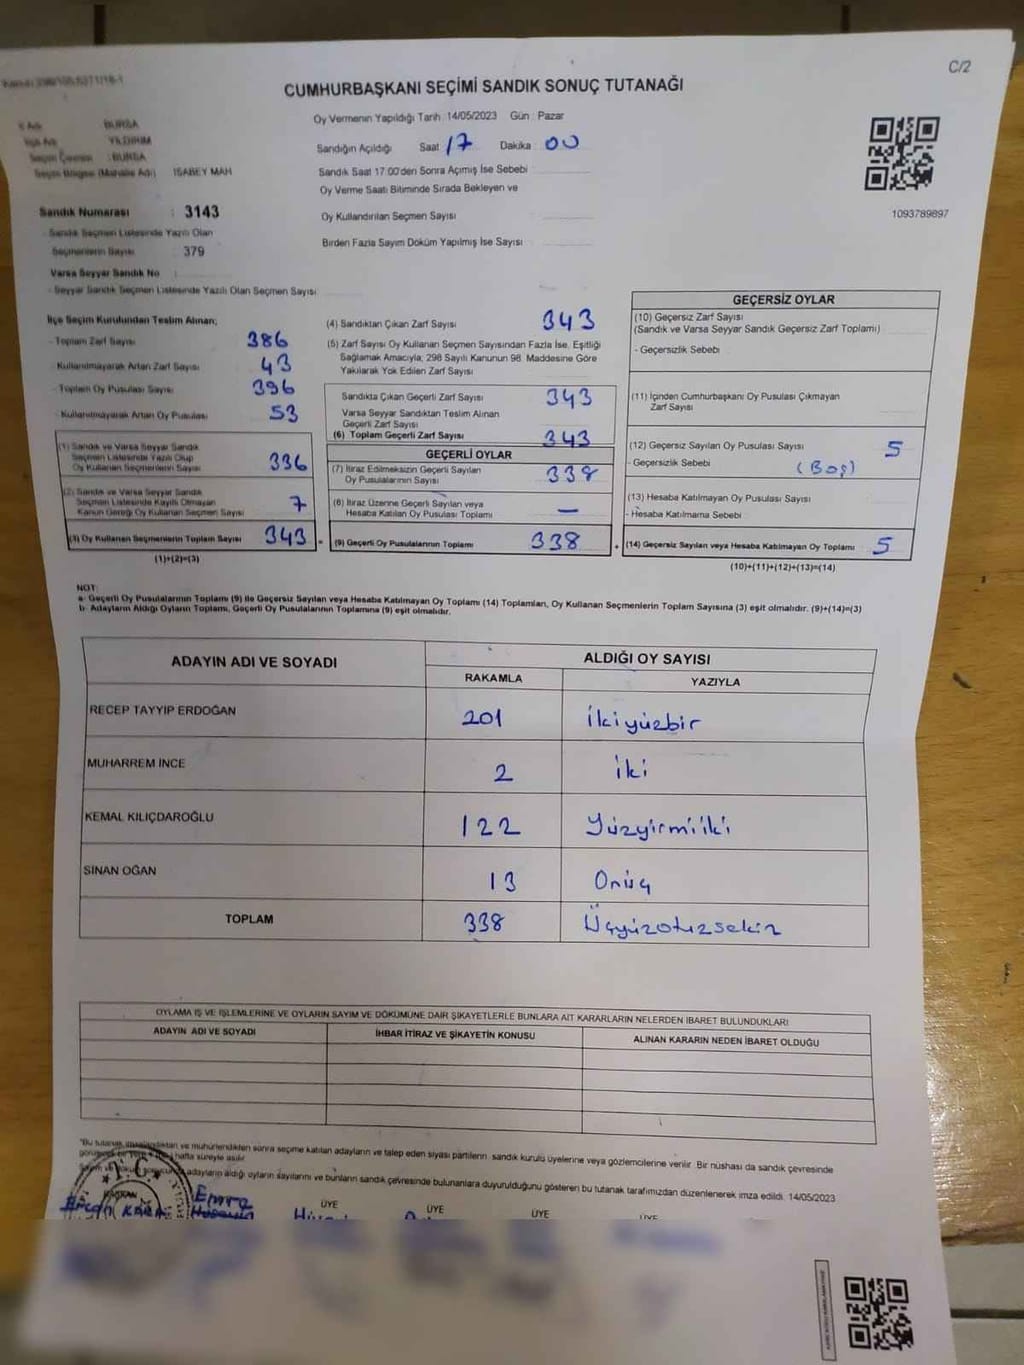 C/2
CUMHURBAŞKANI SEÇİMİ SANDIK SONUÇ TUTANAĞI
Oy Vermenin Yapıldığı Tarih : 14/05/2023 Gün : Pazar
İl Adı : BURSA
İlçe Adı : YILDIRIM
Seçim Çevresi : BURSA
Seçim Bölgesi (Mahalle Adı) : ISABEY MAH
Sandığın Açıldığı Saat 17 Dakika 00
Sandık Saat 17:00'den Sonra Açımış İse Sebebi
Oy Verme Saati Bitiminde Sırada Bekleyen ve
Oy Kullandırılan Seçmen Sayısı
Birden Fazla Sayım Döküm Yapılmış İse Sayısı
1093789897
Sandık Numarası : 3143
Sandık Seçmen Listesinde Yazılı Olan
Seçmenlerin Sayısı : 379
Varsa Seyyar Sandık No :
- Seyyar Sandık Seçmen Listesinde Yazılı Olan Seçmen Sayısı:
İlçe Seçim Kurulundan Teslim Alınan;
- Toplam Zarf Sayısı 386
- Kullanılmayarak Artan Zarf Sayısı 43
- Toplam Oy Pusulası Sayısı 396
- Kullanılmayarak Artan Oy Pusulası 53
(1) Sandık ve Varsa Seyyar Sandık
Seçmen Listesinde Yazılı Olup
Oy Kullanan Seçmenlerin Sayısı 336
(2) Sandık ve Varsa Seyyar Sandık
Seçmen Listesinde Kayıtlı Olmayan
Kanun Gereği Oy Kullanan Seçmen Sayısı 7
(3) Oy Kullanan Seçmenlerin Toplam Sayısı 343
(1)+(2)=(3)
(4) Sandıktan Çıkan Zarf Sayısı 343
(5) Zarf Sayısı Oy Kullanan Seçmen Sayısından Fazla İse, Eşitliği
Sağlamak Amacıyla, 298 Sayılı Kanunun 98. Maddesine Göre
Yakılarak Yok Edilen Zarf Sayısı
Sandıkta Çıkan Geçerli Zarf Sayısı 343
Varsa Seyyar Sandıktan Teslim Alınan
Geçerli Zarf Sayısı
(6) Toplam Geçerli Zarf Sayısı 343
GEÇERLİ OYLAR
(7) İtiraz Edilmeksizin Geçerli Sayılan
Oy Pusulalarının Sayısı 338
(8) İtiraz Üzerine Geçerli Sayılan veya
Hesaba Katılan Oy Pusulası Toplamı —
= (9) Geçerli Oy Pusulalarının Toplamı 338
GEÇERSİZ OYLAR
(10) Geçersiz Zarf Sayısı
(Sandık ve Varsa Seyyar Sandık Geçersiz Zarf Toplamı)
- Geçersizlik Sebebi
(11) İçinden Cumhurbaşkanı Oy Pusulası Çıkmayan
Zarf Sayısı
(12) Geçersiz Sayılan Oy Pusulası Sayısı 5
- Geçersizlik Sebebi (Boş)
(13) Hesaba Katılmayan Oy Pusulası Sayısı
- Hesaba Katılmama Sebebi
+ (14) Geçersiz Sayılan veya Hesaba Katılmayan Oy Toplamı 5
(10)+(11)+(12)+(13)=(14)
NOT:
a- Geçerli Oy Pusulalarının Toplamı (9) ile Geçersiz Sayılan veya Hesaba Katılmayan Oy Toplamı (14) Toplamları, Oy Kullanan Seçmenlerin Toplam Sayısına (3) eşit olmalıdır. (9)+(14)=(3)
b- Adayların Aldığı Oyların Toplamı, Geçerli Oy Pusulalarının Toplamına (9) eşit olmalıdır.
ADAYIN ADI VE SOYADI ALDIĞI OY SAYISI
RAKAMLA YAZIYLA
RECEP TAYYIP ERDOĞAN 201 İkiyüzbir
MUHARREM İNCE 2 iki
KEMAL KILIÇDAROĞLU 122 Yüzyirmiiki
SİNAN OĞAN 13 Onüç
TOPLAM 338 Üçyüzotuzsekiz
OYLAMA İŞ VE İŞLEMLERİNE VE OYLARIN SAYIM VE DÖKÜMÜNE DAİR ŞİKAYETLERLE BUNLARA AİT KARARLARIN NELERDEN İBARET BULUNDUKLARI
ADAYIN ADI VE SOYADI İHBAR İTİRAZ VE ŞİKAYETİN KONUSU ALINAN KARARIN NEDEN İBARET OLDUĞU
"Bu tutanak imzalandıktan ve mühürlendikten sonra seçime katılan adayların ve talep eden siyasi partilerin sandık kurulu üyelerine veya gözlemcilerine verilir. Bir nüshası da sandık çevresinde
hafta süreyle asılır
adayların aldığı oyların sayılarını ve bunların sandık çevresinde bulunanlara duyurulduğunu gösteren bu tutanak tarafımızdan düzenlenerek imza edildi. 14/05/2023
T.C.
BAŞKAN ÜYE ÜYE ÜYE ÜYE
Emre